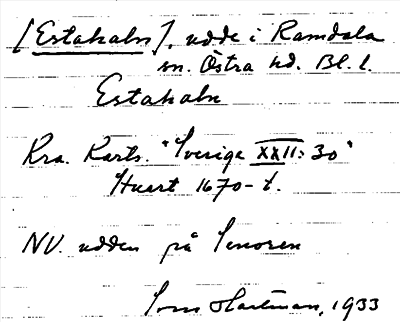 [Estahaln], udde i Ramdala
sn. Östra hd. Bl. l.
Estahaln
Kra. Kart. "Sverige XXII: 30"
1670-t.
NV. udden på Senoren
Hartman, 1933